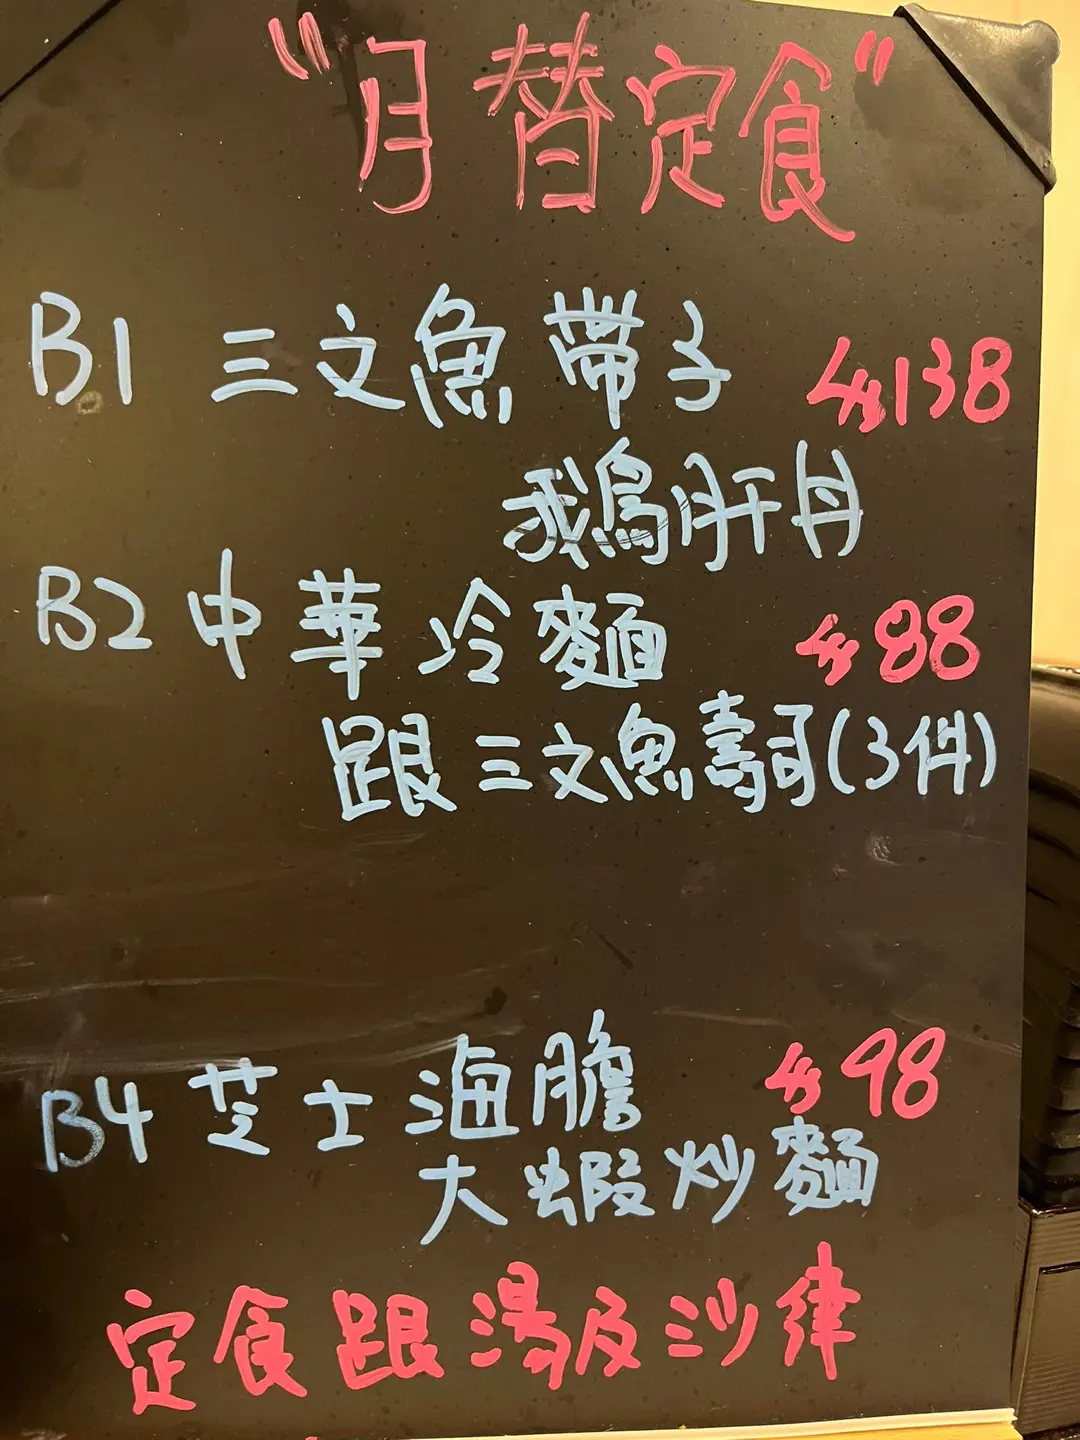 "月替定食"
B1 三文魚帶子 $138
鵝肝丼
B2 中華冷麵 $88
跟三文魚壽司(3件)
B4 芝士海膽 $98
大蝦炒麵
定食跟湯及沙律